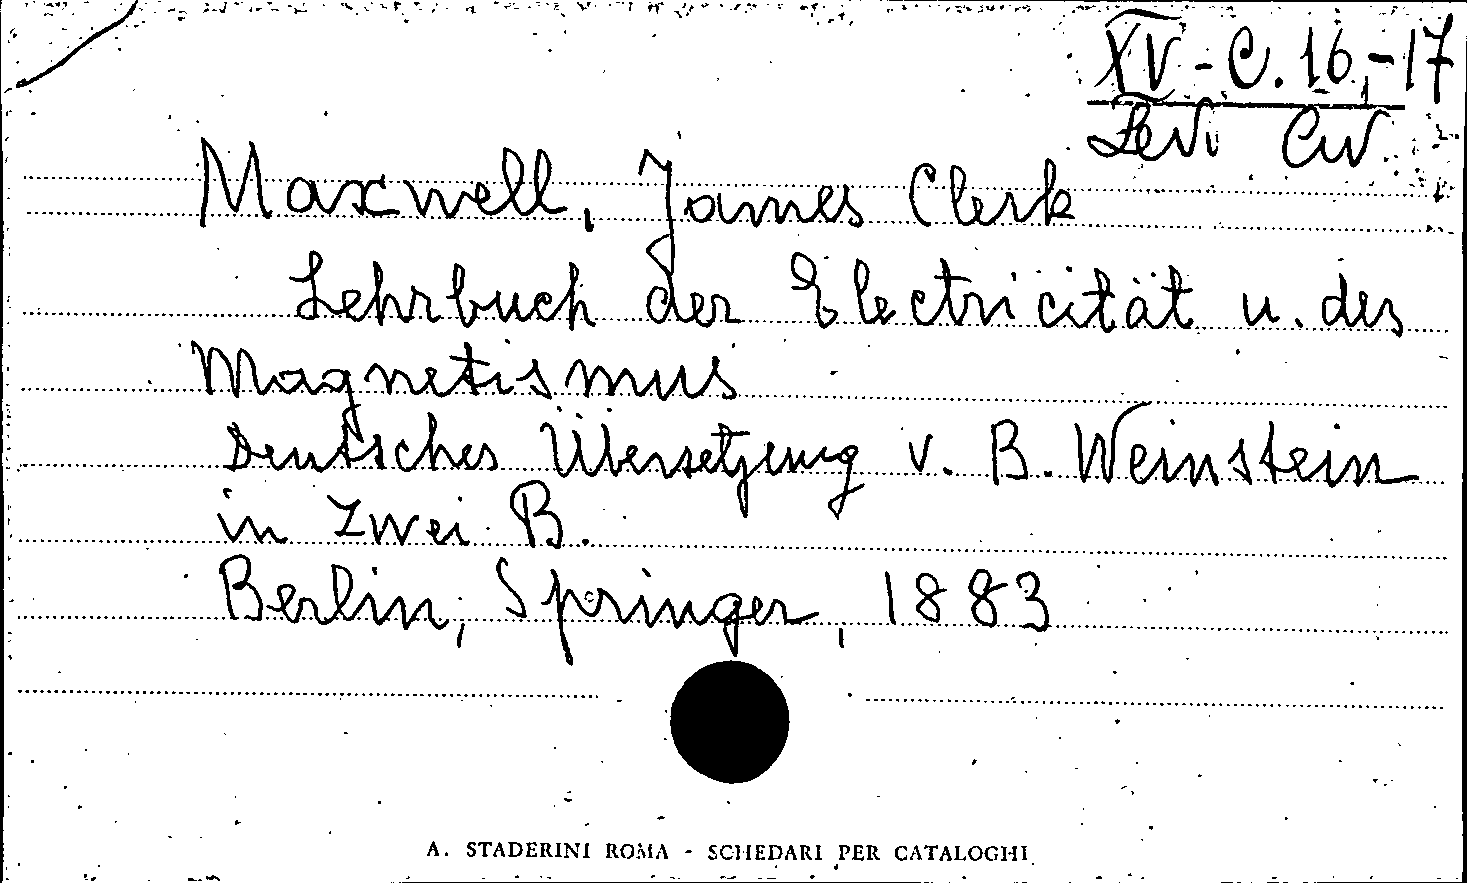 XV - C. 16,-17
Levi Civ
Maxwell, James Clerk
Lehrbuch der Electricität u. des
Magnetismus
Deutsches Übersetzung v. B. Weinstein
in zwei B.
Berlin, Springer, 1883
A. STADERINI ROMA - SCHEDARI PER CATALOGHI